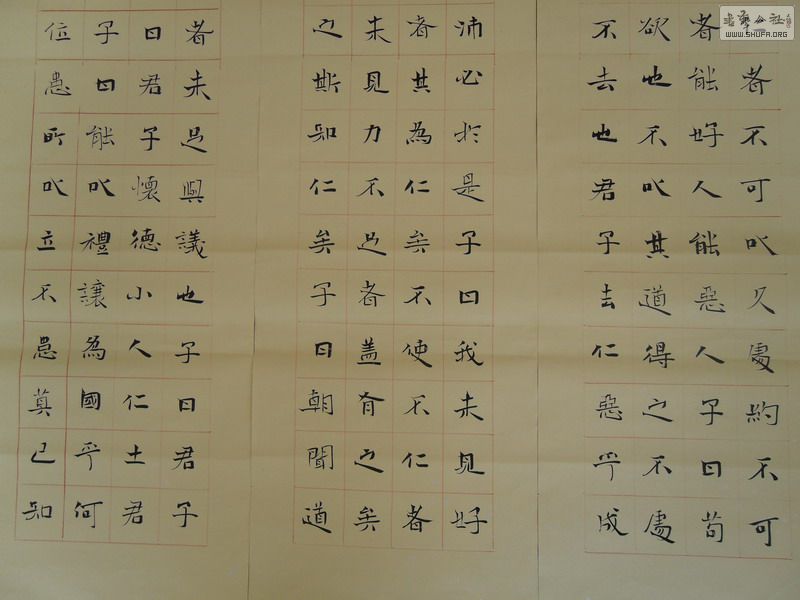 书艺公社
WWW.SHUFA.ORG
者不可以久處約不可
者能好人能惡人子曰苟
欲也不以其道得之不處
不去也君子去仁惡乎成
沛必於是子曰我未見好
者其為仁矣不使不仁者
未見力不足者蓋有之矣
之斯知仁矣子曰朝聞道
者未足與議也子曰君子
曰君子懷德小人仁土君
子曰能以禮讓為國乎何
位患所以立不患莫己知